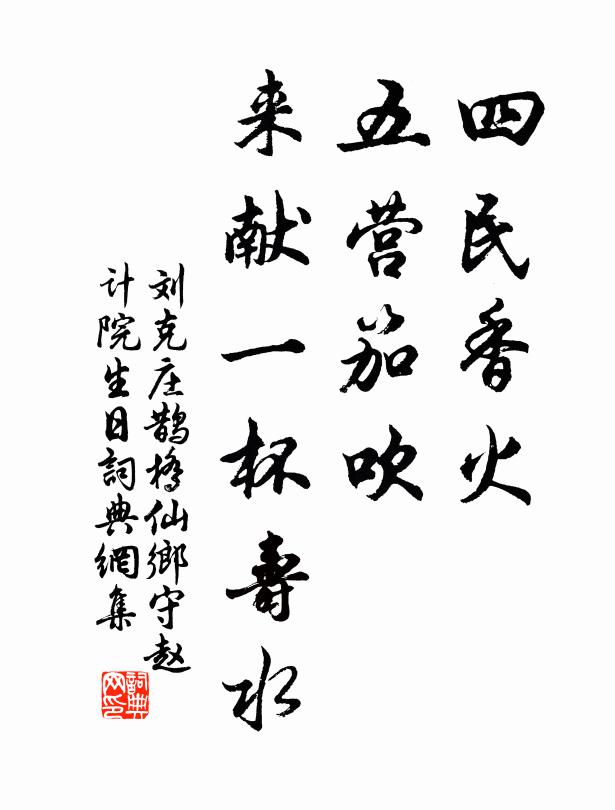 四民香火
五营笳吹
来献一杯壽水
刘克庄鹊橋仙鄉守赵
计院生日詞典網集
詞典網印